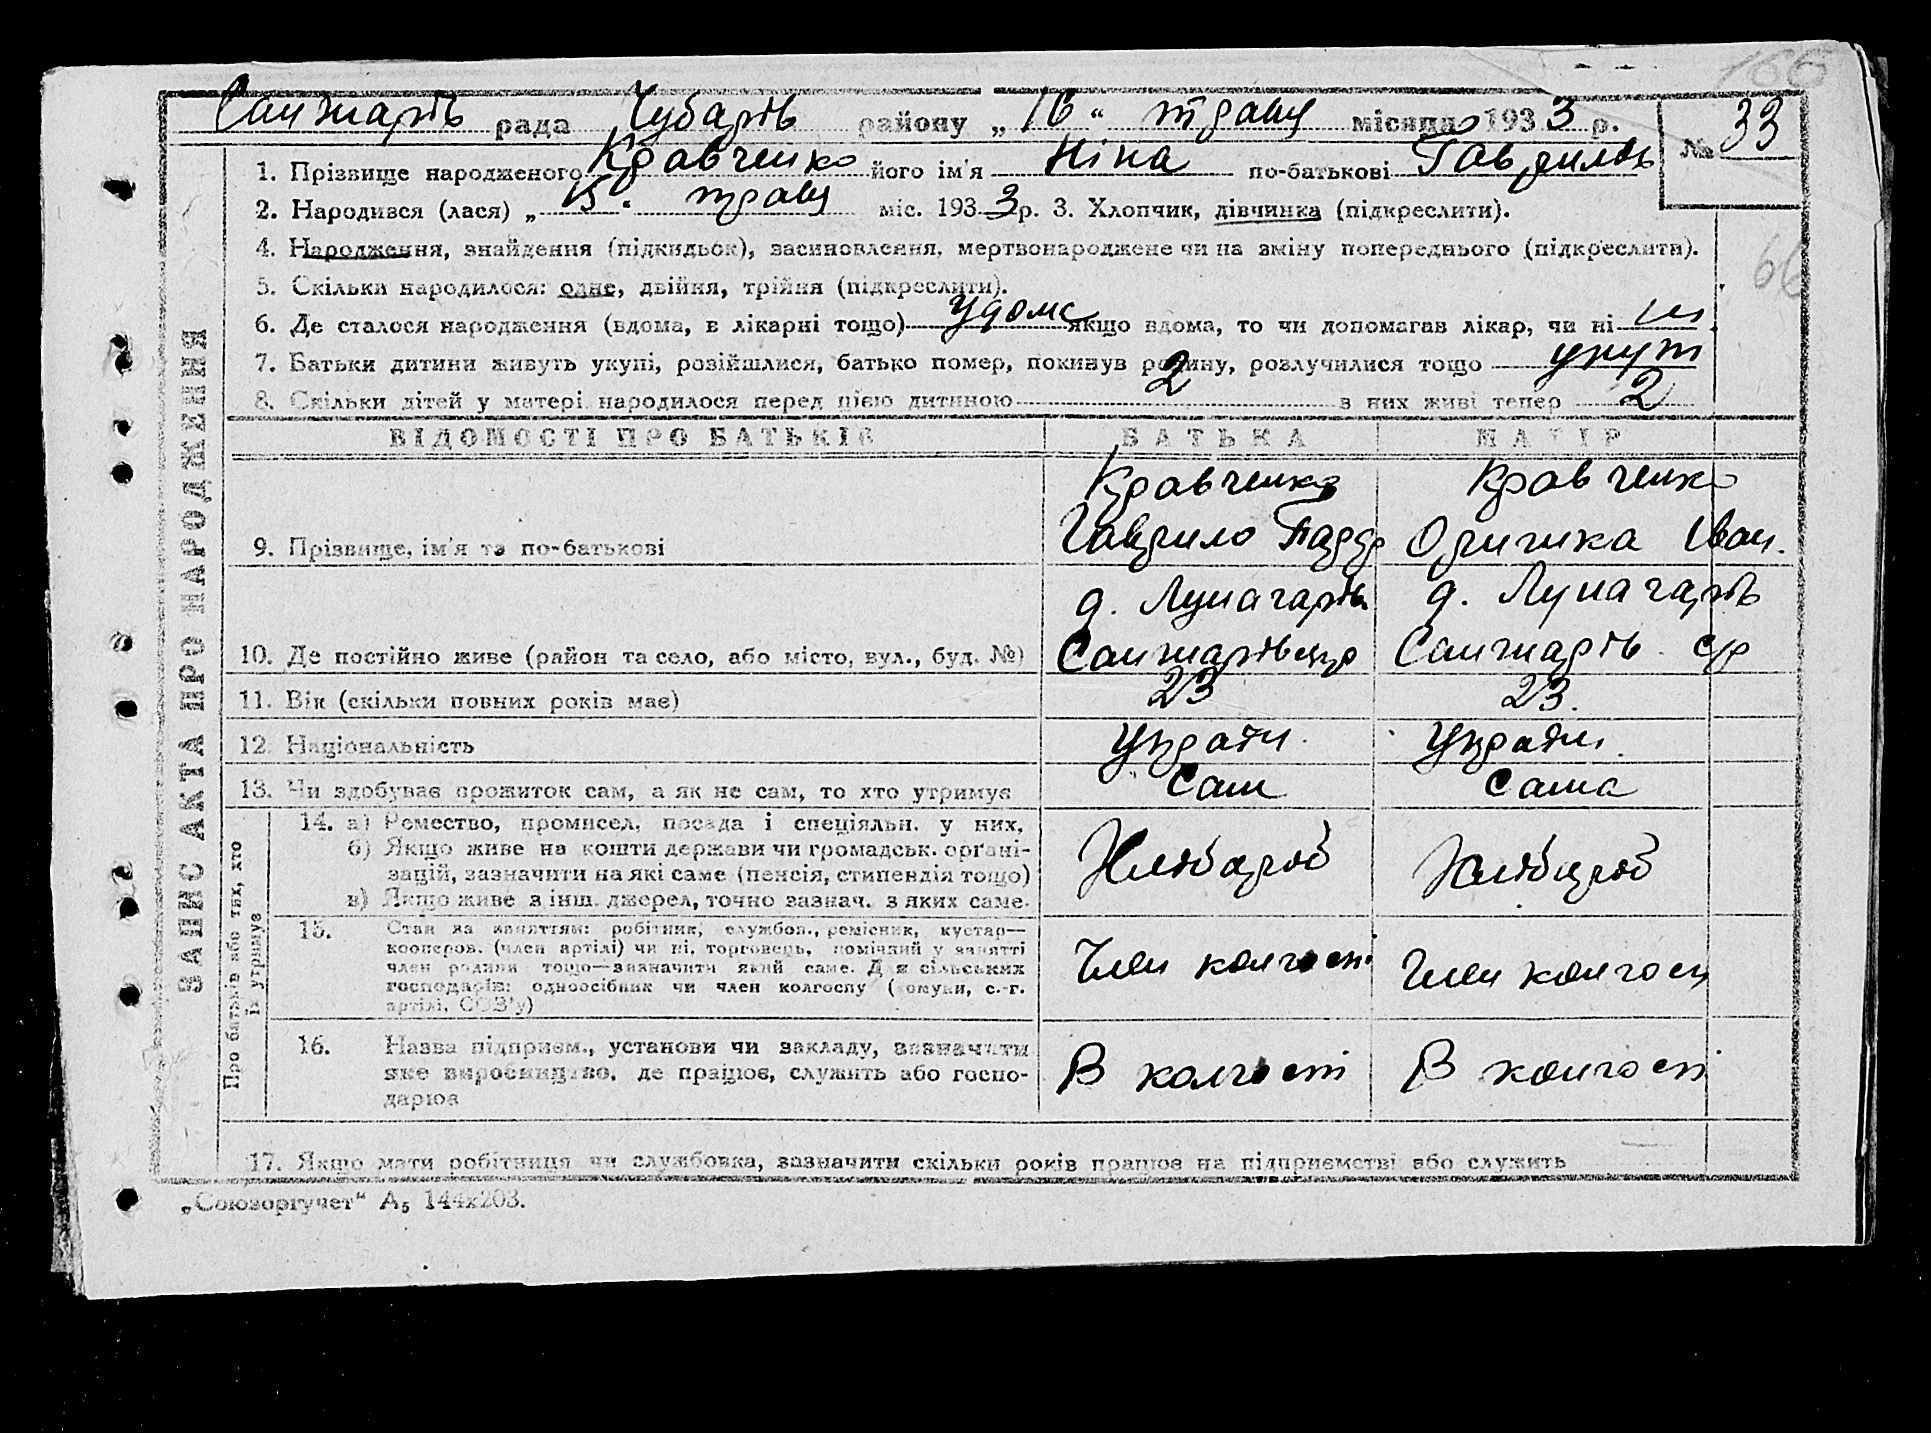 166
Санжарів рада Чубарів району „16“ травня місяця 1933 р.
№ 33
1. Прізвище народженого Кравченко його ім'я Ніна по-батькові Гаврилів
2. Народився (лася) „15“ травня міс. 1933 р. 3. Хлопчик, дівчинка (підкреслити).
4. Народження, знайдення (підкидьок), засиновлення, мертвонароджене чи на зміну попереднього (підкреслити).
66
5. Скільки народилося: одне, двійня, трійня (підкреслити).
6. Де сталося народження (вдома, в лікарні тощо) удома якщо вдома, то чи допомагав лікар, чи ні ні
7. Батьки дитини живуть укупі, розійшлися, батько помер, покинув родину, розлучилися тощо укупі
8. Скільки дітей у матері народилося перед цією дитиною 2 з них живі тепер 2
ЗАПИС АКТА ПРО НАРОДЖЕННЯ
ВІДОМОСТІ ПРО БАТЬКІВ БАТЬКА МАТІР
Кравченко Кравченко
9. Прізвище, ім'я та по-батькові Гаврило Оришка Іван.
д. Луначарів д. Луначарів
10. Де постійно живе (район та село, або місто, вул., буд. №) Санжарів с/р Санжарів с/р
11. Вік (скільки повних років має) 23 23.
12. Національність Україн. Україн.
13. Чи здобуває прожиток сам, а як не сам, то хто утримує Сам Сама
Про батьків або тих, хто їх утримує
14. а) Ремество, промисел, посада і спеціяльн. у них,
б) Якщо живе на кошти держави чи громадськ. органі-
зацій, зазначити на які саме (пенсія, стипендія тощо) Хлібороб Хлібороб
в) Якщо живе з інш. джерел, точно зазнач. з яких саме.
15. Стан за заняттям: робітник, службов., ремісник, кустар—
кооперов. (член артілі) чи ні, торговець, помічний у занятті
член родини тощо—зазначити який саме. Для сільських Член колгосп Член колгосп
господарів: одноосібник чи член колгоспу (комуни, с.-г.
артілі, СОЗ'у)
16. Назва підприєм., установи чи закладу, зазначити
яке виробництво, де працює, служить або госпо- В колгоспі В колгоспі
дарює
17. Якщо мати робітниця чи службовка, зазначити скільки років працює на підприємстві або служить
„Союзоргучет“ А5 144х203.